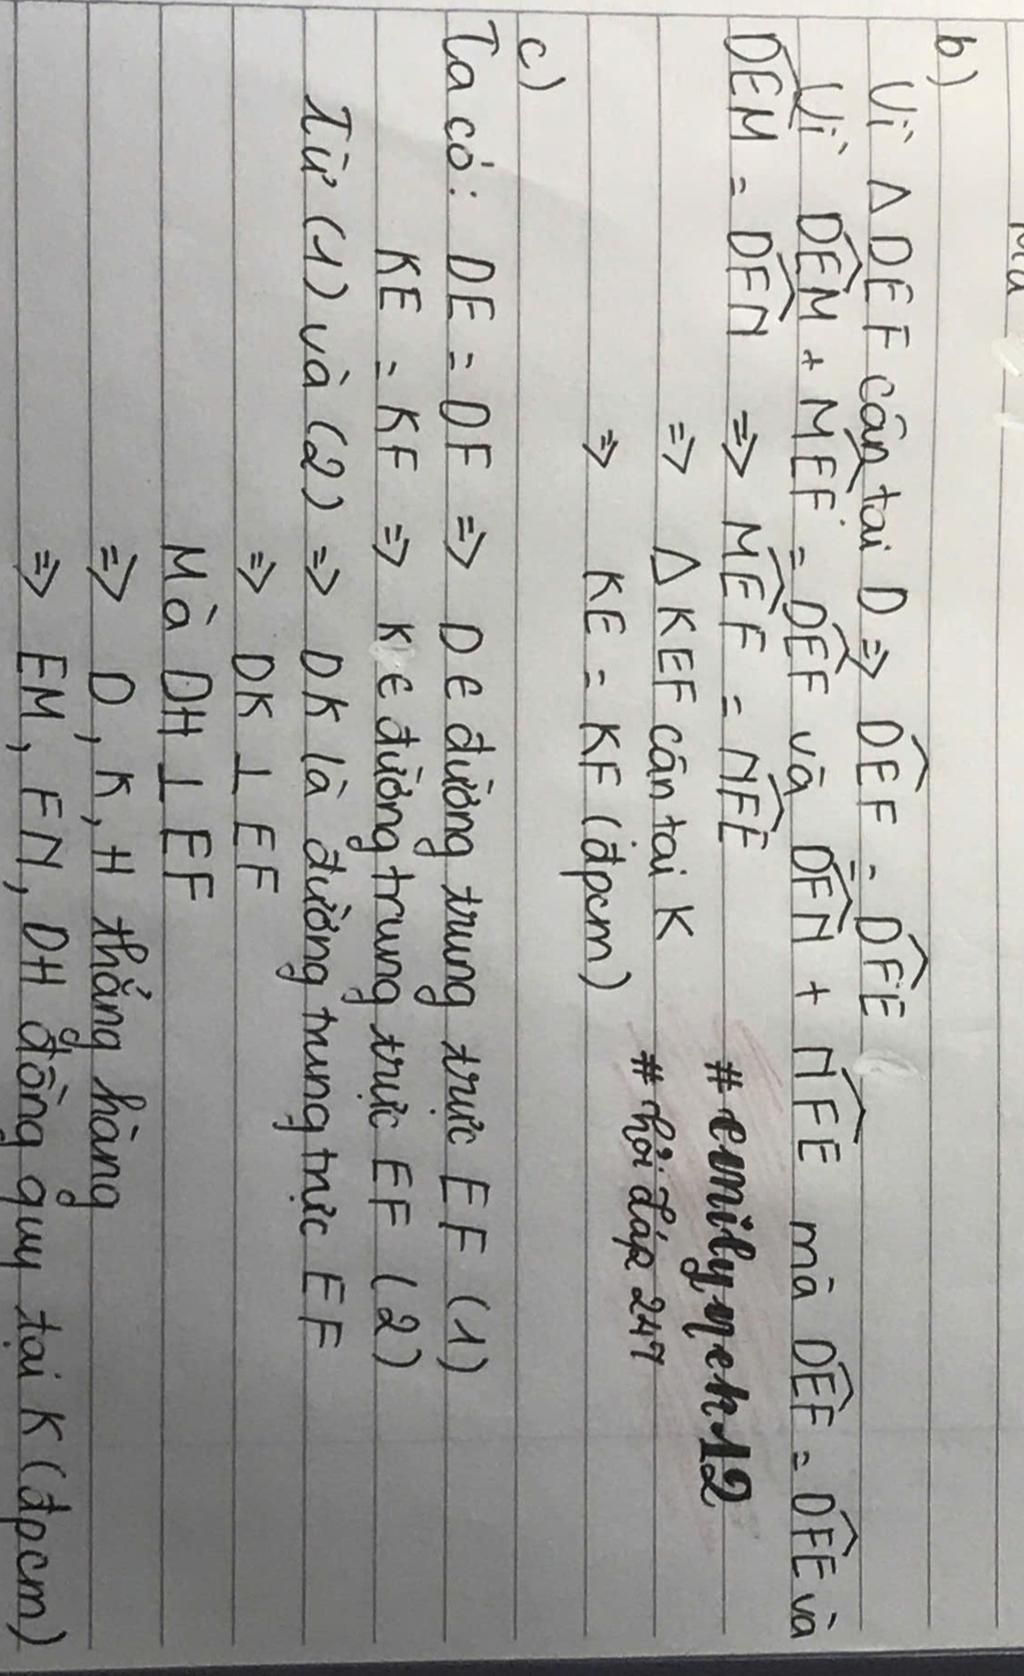 b)
Vì Δ DEF cân tại D ⇒ \widehat{DEF} = \widehat{DFE}
Vì \widehat{DEM} + \widehat{MEF} = \widehat{DEF} và \widehat{DFN} + \widehat{NFE} mà \widehat{DEF} = \widehat{DFE} và
\widehat{DEM} = \widehat{DFN} ⇒ \widehat{MEF} = \widehat{NFE}
⇒ Δ KEF cân tại K
⇒ KE = KF (đpcm)
# emilyqeh12
# hỏi đáp 247
c)
Ta có: DE = DF ⇒ D ∈ đường trung trực EF (1)
KE = KF ⇒ K ∈ đường trung trực EF (2)
Từ (1) và (2) ⇒ DK là đường trung trực EF
⇒ DK ⊥ EF
Mà DH ⊥ EF
⇒ D, K, H thẳng hàng
⇒ EM, FN, DH đồng quy tại K (đpcm)